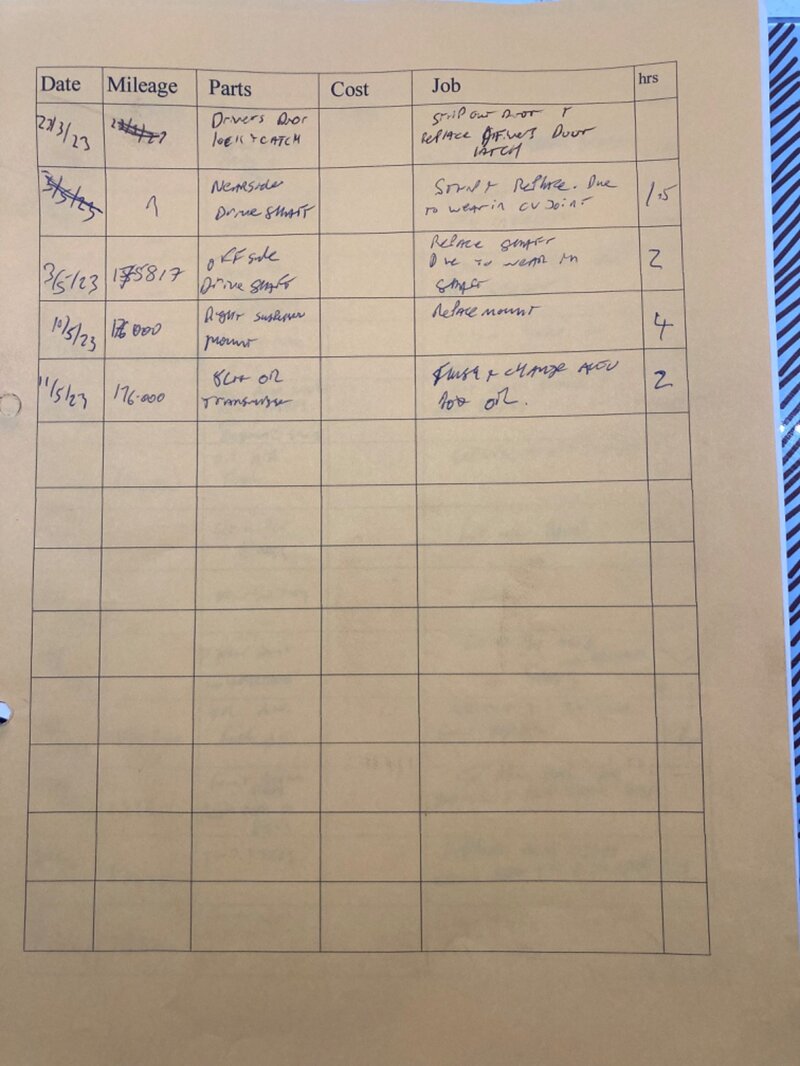 Date Mileage Parts Cost Job hrs
Drivers Door
lock + CATCH
Strip out Door +
Replace Drivers Door
LATCH
/3/23
Nearside
Drive SHAFT
Replace. Due
to wear in CV Joint
1.5
3/5/23
3/5/23 175817
OFF Side
Drive SHAFT
Replace SHAFT
Due to wear in
SHAFT
2
10/5/23 176000
Right
mount
Replace mount
4
11/5/23 176.000
OIL
+ CHANGE
OIL.
2